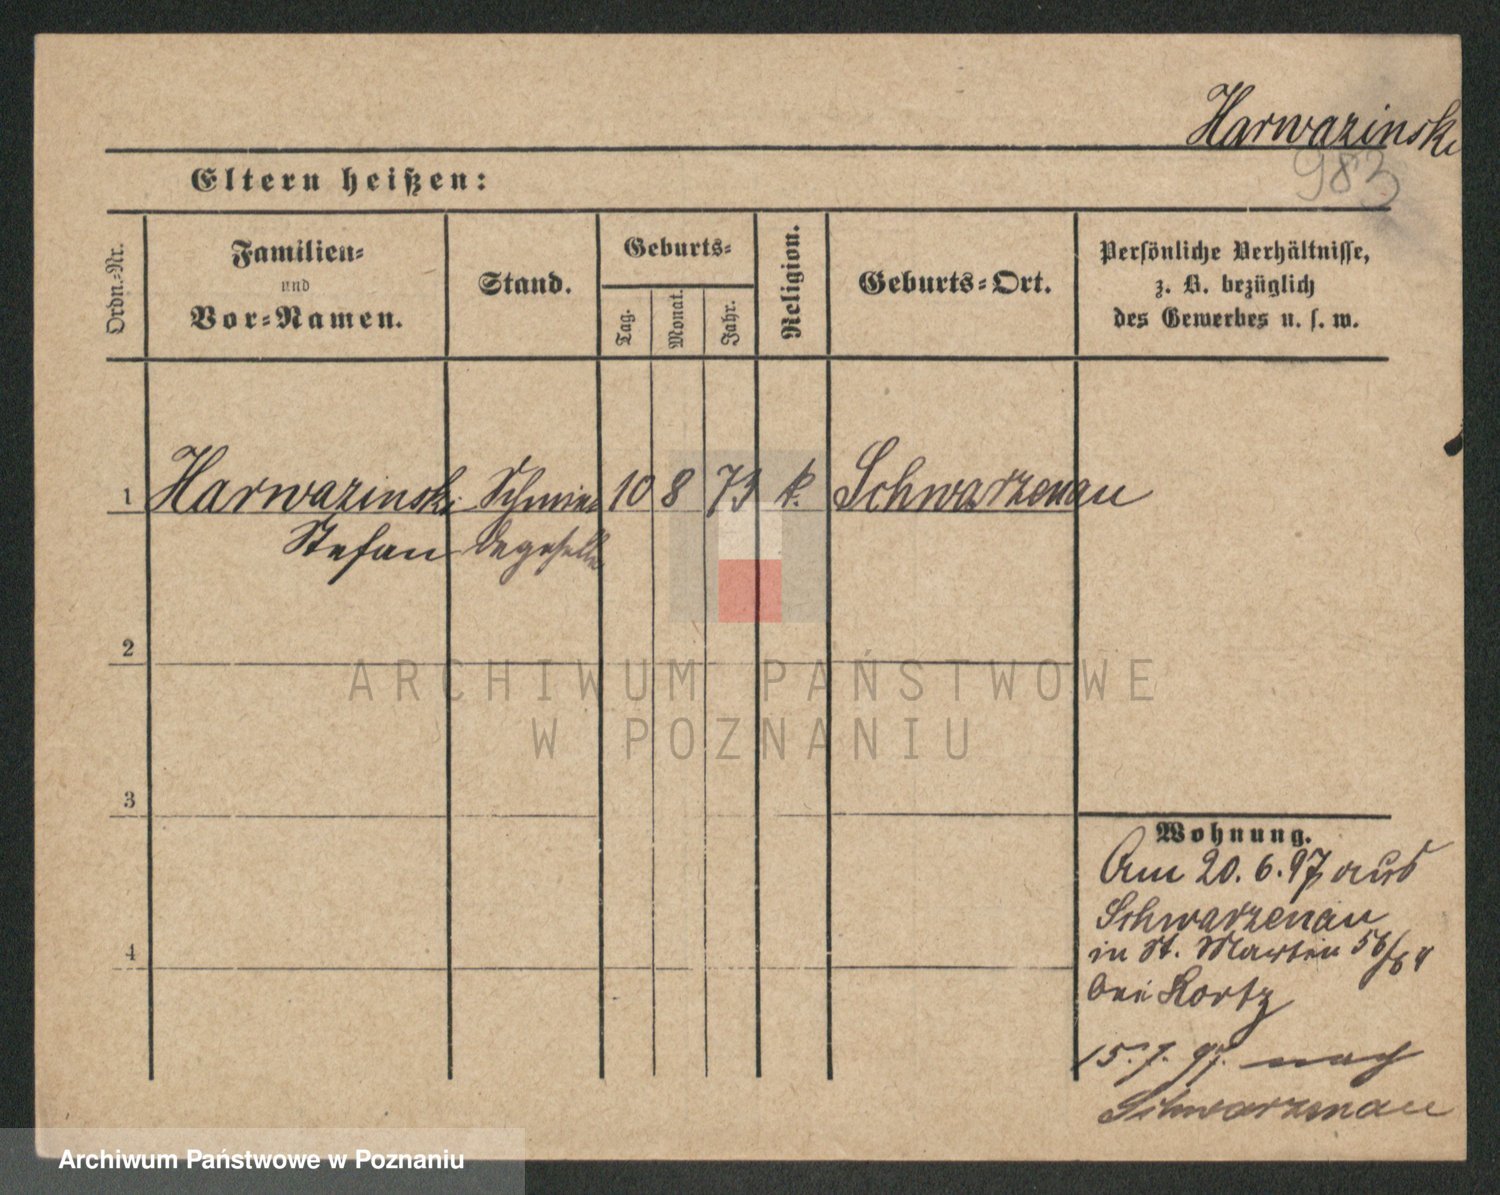 Harwazinski
983
Eltern heißen:
Ordn.-Nr.
Familien-
und
Vor-Namen.
Stand.
Geburts-
Tag.
Monat.
Jahr.
Religion.
Geburts-Ort.
Persönliche Verhältnisse,
z. B. bezüglich
des Gewerbes u. s. w.
1 Harwazinski Schmie 10 8 73 k. Schwarzenau
Stefan degeselle
2
3
4
ARCHIWUM PAŃSTWOWE
W POZNANIU
Wohnung.
Am 20.6.97 aus
Schwarzenau
in St. Martin 56/64
bei Kortz
15.7.97. nach
Schwarzenau
Archiwum Państwowe w Poznaniu